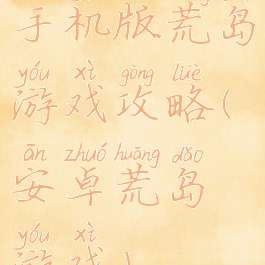 手机版荒岛
yóu xì gōng lüè
游戏攻略(
ān zhuó huāng dǎo
安卓荒岛
yóu xì
游戏)